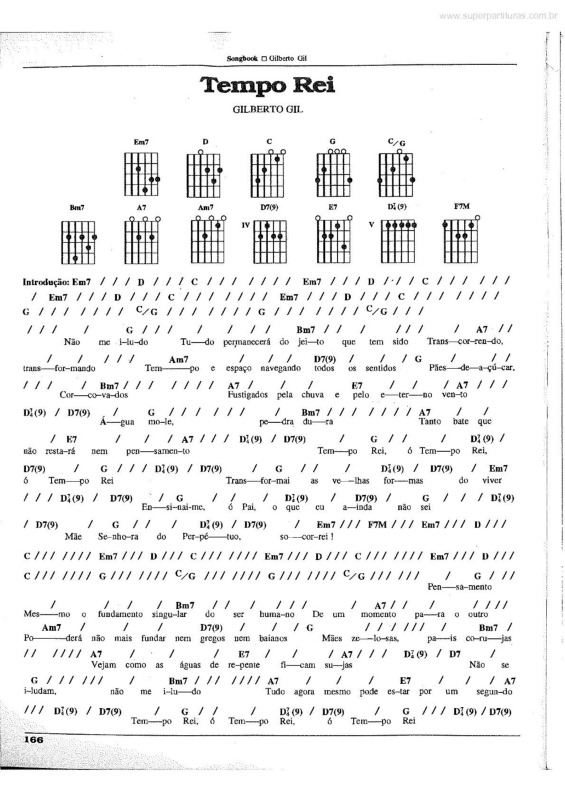 www.superpartituras.com.br
Songbook □ Gilberto Gil
Tempo Rei
GILBERTO GIL
Em7 D C G C/G
Bm7 A7 Am7 D7(9) E7 D7/4(9) F7M
IV V
Introdução: Em7 / / / D / / / C / / / / / / / Em7 / / / D / / / C / / / / / / /
/ Em7 / / / D / / / C / / / / / / / Em7 / / / D / / / C / / / / / / /
G / / / / / / / C/G / / / / / / / G / / / / / / / C/G / / /
/ / / / G / / / / / / / Bm7 / / / / / / A7 / /
Não me i-lu-do Tu—do permanecerá do jei—to que tem sido Trans—cor-ren-do,
/ / / / / Am7 / / / / D7(9) / / / G / / /
trans—for-mando Tem——po e espaço navegando todos os sentidos Pães—de—a-çú-car,
/ / / / Bm7 / / / / / / / A7 / / / E7 / / / A7 / / /
Cor—co-va-dos Fustigados pela chuva e pelo e—ter—no ven-to
D7/4(9) / D7(9) / G / / / / / / / Bm7 / / / / / / / A7 / /
Á—gua mo-le, pe—dra du—ra Tanto bate que
/ E7 / / / A7 / / / D7/4(9) / D7(9) / G / / / D7/4(9) /
não resta-rá nem pen—samen-to Tem—po Rei, ó Tem—po Rei,
D7(9) / G / / / D7/4(9) / D7(9) / G / / / D7/4(9) / D7(9) / Em7
ó Tem—po Rei Trans—for-mai as ve—lhas for—mas do viver
/ / / D7/4(9) / D7(9) / G / / / D7/4(9) / D7(9) / G / / / D7/4(9)
En—si-nai-me, ó Pai, o que eu a—inda não sei
/ D7(9) / G / / / D7/4(9) / D7(9) / Em7 / / / F7M / / / Em7 / / / D / / /
Mãe Se-nho-ra do Per-pé—tuo, so—cor-rei !
C / / / / / / / Em7 / / / D / / / C / / / / / / / Em7 / / / D / / / C / / / / / / / Em7 / / / D / / /
C / / / / / / / G / / / / / / / C/G / / / / / / / G / / / / / / / C/G / / / / / / / G / / /
Pen—sa-mento
/ / / / Bm7 / / / / / / / A7 / / / / / / /
Mes—mo o fundamento singu-lar do ser huma-no De um momento pa—ra o outro
Am7 / / / D7(9) / / / G / / / / / / / Bm7 /
Po——derá não mais fundar nem gregos nem baianos Mães ze—lo-sas, pa—is co-ru—jas
/ / / / / / A7 / / / E7 / / / A7 / / / D7/4(9) / D7 /
Vejam como as águas de re-pente fi—cam su-jas Não se
G / / / / / / / Bm7 / / / / / / / A7 / / / E7 / / / A7
i-ludam, não me i-lu—do Tudo agora mesmo pode es-tar por um segun-do
/ / / D7/4(9) / D7(9) / G / / / D7/4(9) / D7(9) / G / / / D7/4(9) / D7(9)
Tem—po Rei, ó Tem—po Rei, ó Tem—po Rei
166